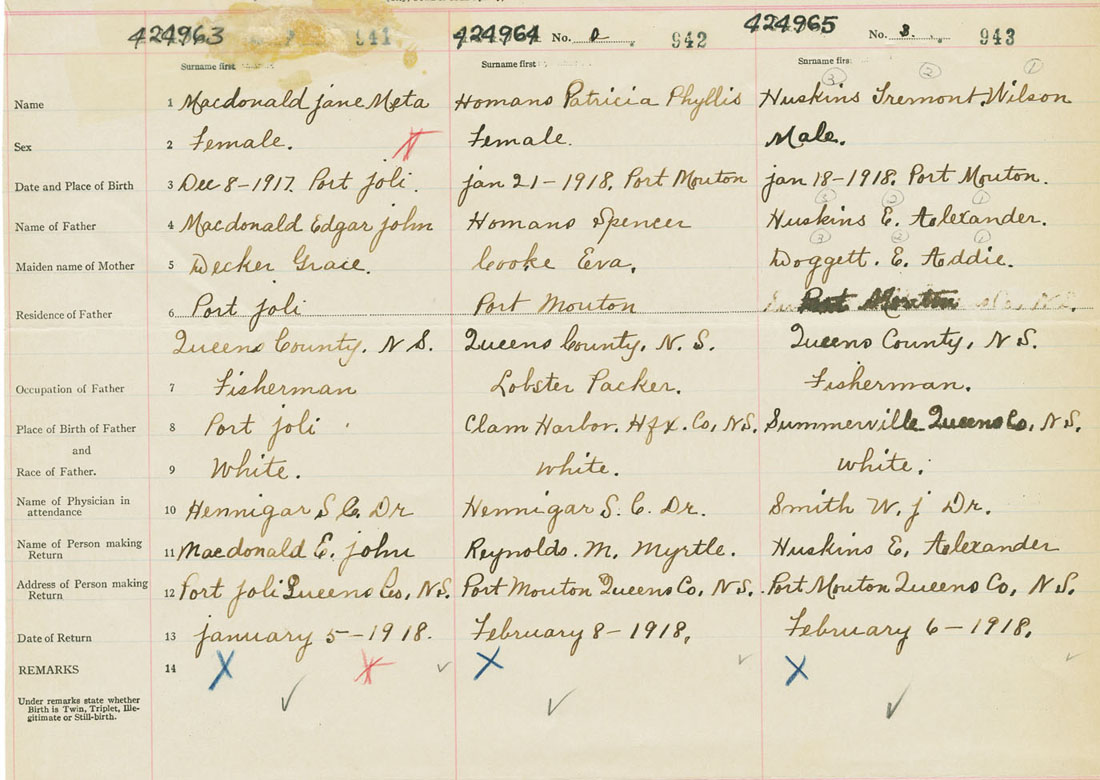 424963 941 424964 No. 2 942 424965 No. 3. 943
Surname first Surname first Surname first
③ ② ①
Name 1 Macdonald jane Meta Homans Patricia Phyllis Huskins Tremont Wilson
Sex 2 Female. Female. Male.
Date and Place of Birth 3 Dec 8-1917. Port joli. jan 21-1918. Port Mouton jan 18-1918. Port Mouton.
③ ② ①
Name of Father 4 Macdonald Edgar john Homans Spencer Huskins E. Alexander.
③ ② ①
Maiden name of Mother 5 Decker Grace. Cooke Eva. Doggett. E. Addie.
Residence of Father 6 Port joli Port Mouton Port Mouton
Queens County. N S. Queens County, N. S. Queens County, N S.
Occupation of Father 7 Fisherman Lobster Packer. Fisherman.
Place of Birth of Father 8 Port joli Clam Harbor. Hfx. Co, N.S. Summerville Queens Co, N.S.
and
Race of Father. 9 White. White. White.
Name of Physician in
attendance 10 Hennigar S C. Dr Hennigar S. C. Dr. Smith W. j Dr.
Name of Person making
Return 11 Macdonald E. john Reynolds. M. Myrtle. Huskins E. Alexander
Address of Person making
Return 12 Port joli Queens Co, N.S. Port Mouton Queens Co, N.S. Port Mouton Queens Co, N S.
Date of Return 13 january 5-1918. February 8-1918. February 6-1918.
REMARKS 14 X X X
Under remarks state whether
Birth is Twin, Triplet, Ille-
gitimate or Still-birth.